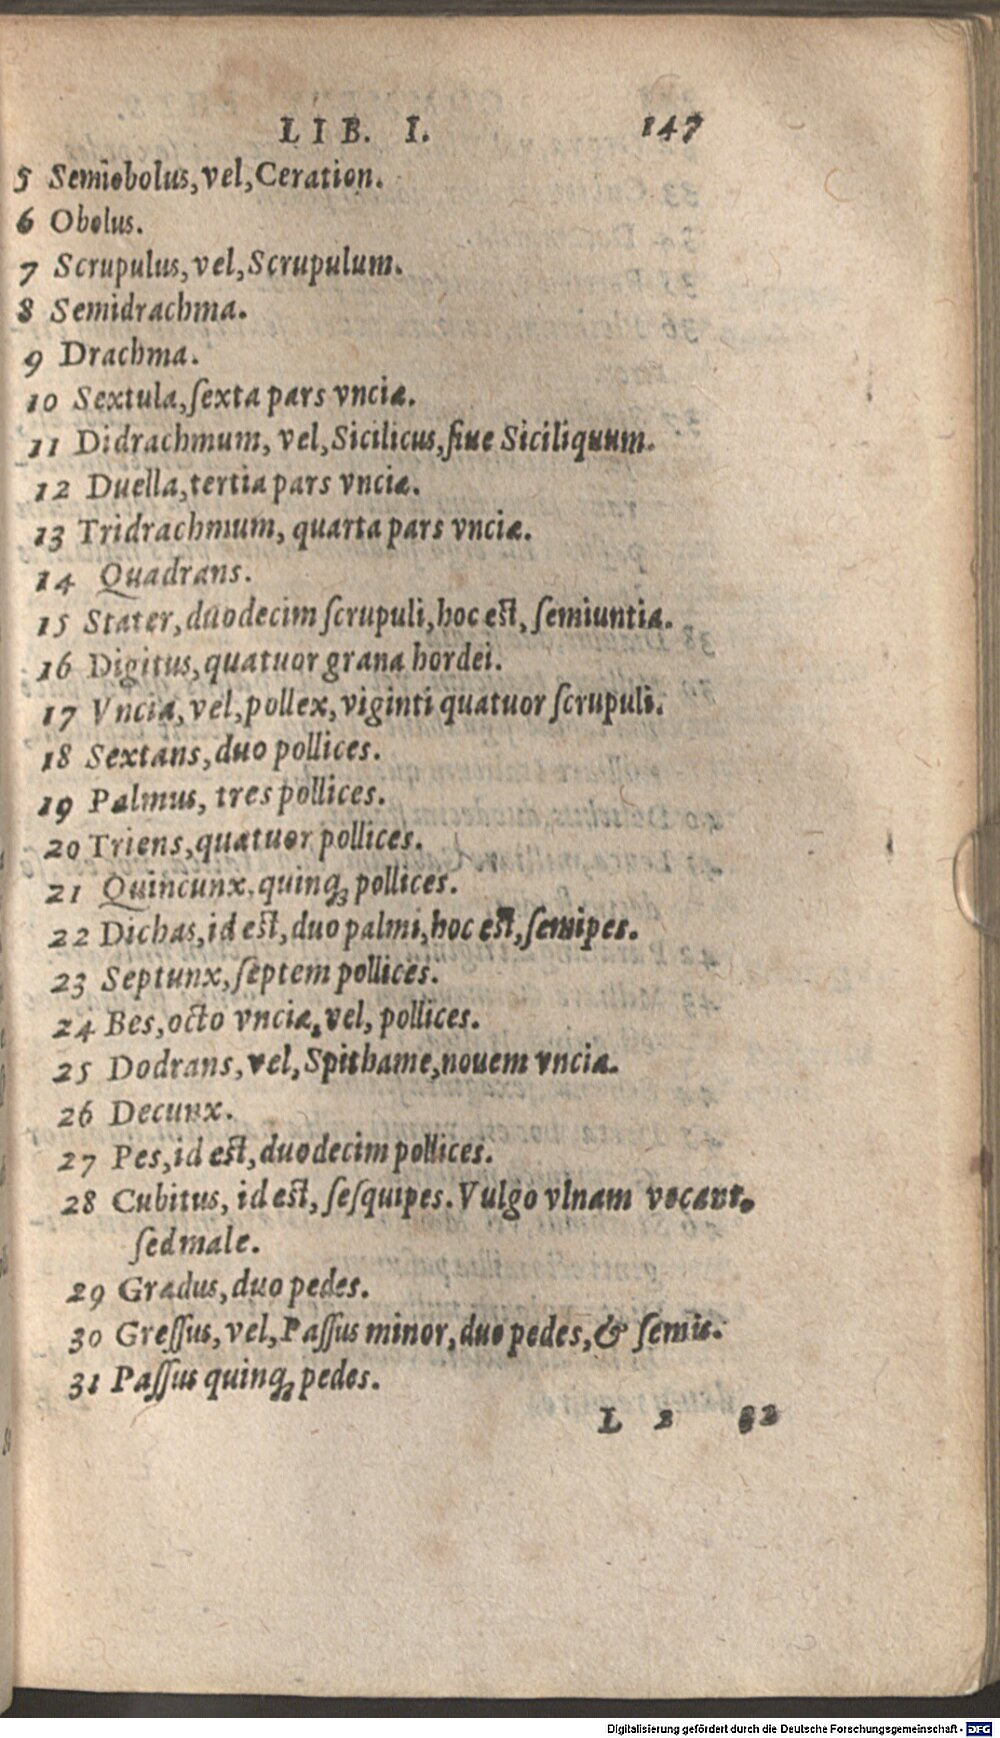 LIB. I. 147
5 Semiobolus, vel, Ceration.
6 Obolus.
7 Scrupulus, vel, Scrupulum.
8 Semidrachma.
9 Drachma.
10 Sextula, ſexta pars vnciæ.
11 Didrachmum, vel, Sicilicus, ſiue Siciliquum.
12 Duella, tertia pars vnciæ.
13 Tridrachmum, quarta pars vnciæ.
14 Quadrans.
15 Stater, duodecim ſcrupuli, hoc eſt, ſemiuntia.
16 Digitus, quatuor grana hordei.
17 Vncia, vel, pollex, viginti quatuor ſcrupuli.
18 Sextans, duo pollices.
19 Palmus, tres pollices.
20 Triens, quatuor pollices.
21 Quincunx. quinq; pollices.
22 Dichas, id eſt, duo palmi, hoc eſt, ſemipes.
23 Septunx, ſeptem pollices.
24 Bes, octo vnciæ, vel, pollices.
25 Dodrans, vel, Spithame, nouem vnciæ.
26 Decunx.
27 Pes, id eſt, duodecim pollices.
28 Cubitus, id eſt, ſeſquipes. Vulgo vlnam vocant,
ſed male.
29 Gradus, duo pedes.
30 Greſſus, vel, Paſſus minor, duo pedes, & ſemis.
31 Paſſus quinq; pedes.
L 2 32
Digitalisierung gefördert durch die Deutsche Forschungsgemeinschaft - DFG